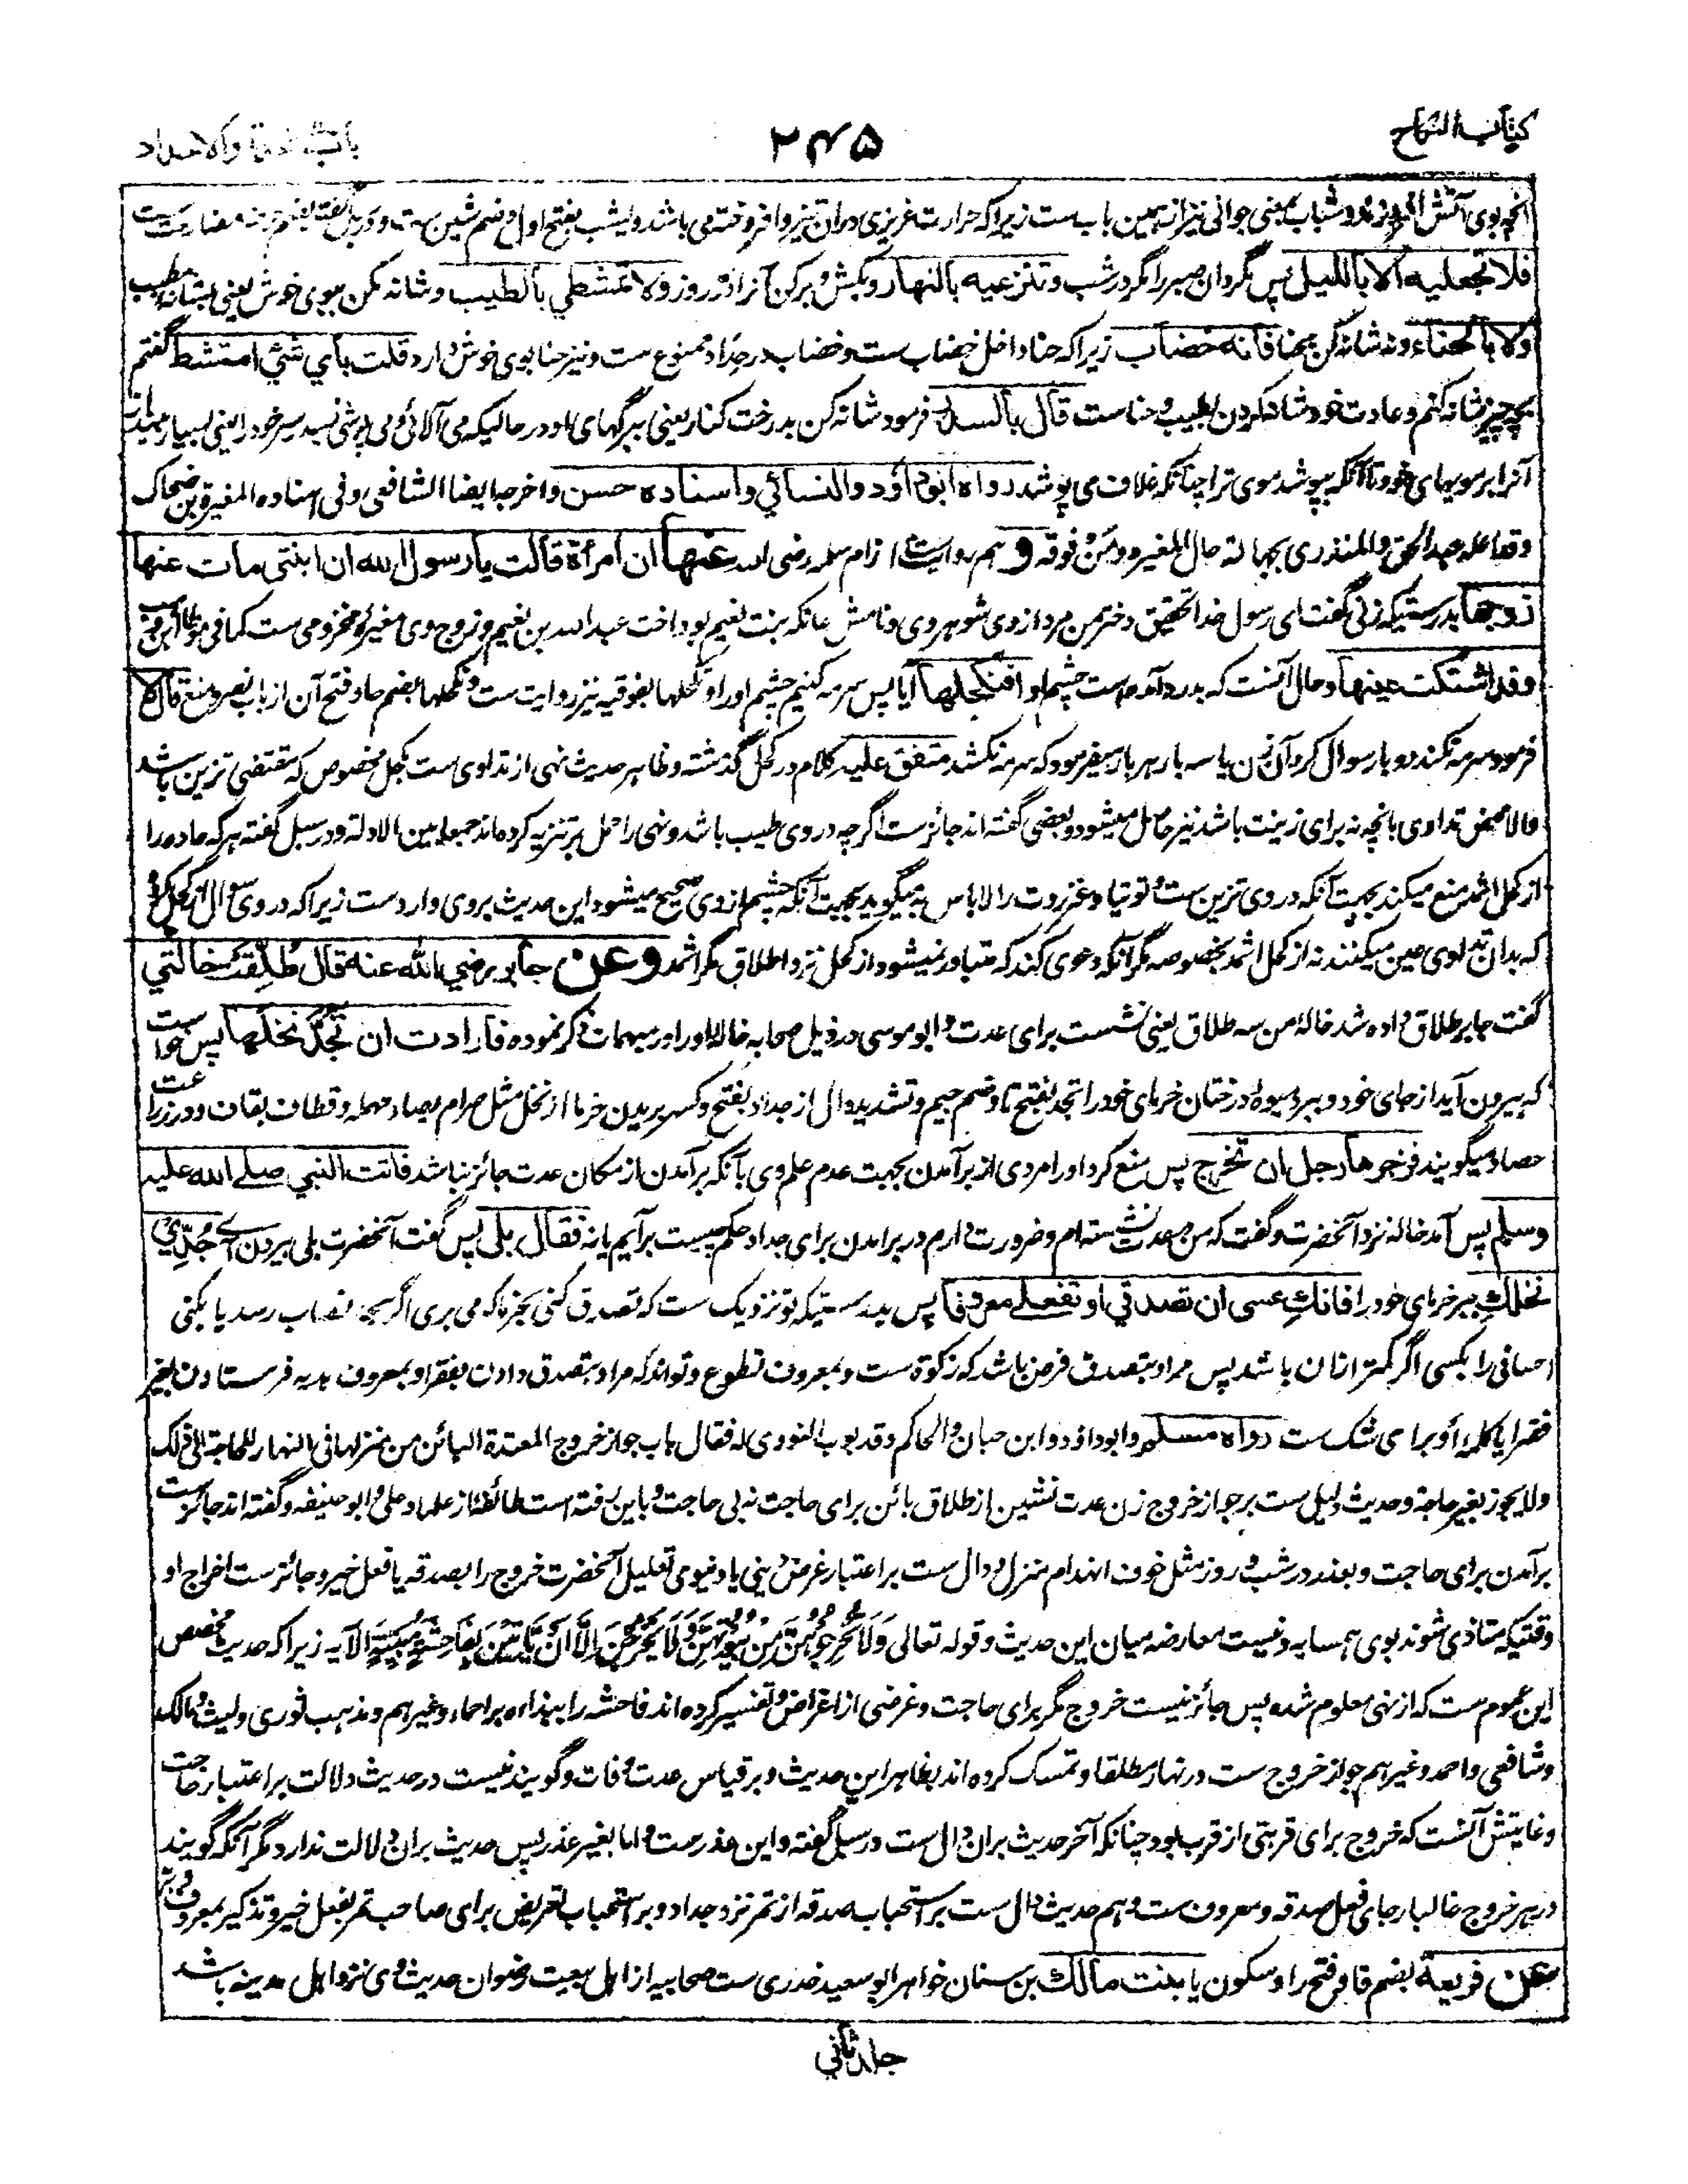 کتاب النکاح
۲۴۵
باب العدة والاحداد
آنچه بوی آتش افروزند و شباب بمعنی جوانی نیز ازهمین باب ست زیراکه حرارت غریزی دران تیز و افروخته می باشد و یشب بفتح اول و ضم شین ست و
فلا تجعلیه الا باللیل پس مگردان صبر را مگر در شب وتنزعیه بالنهار و بکش و برکن آنرا در روز ولا تمتشطي بالطیب و شانه مکن ببوی خوش یعنی بشانه مطیب
ولا بالحناء و نه شانه کن بحنا فانه خضاب زیراکه حنا داخل خضاب ست و خضاب در حداد ممنوع ست و نیز حنا بوی خوش دارد قلت بأي شئ امتشط گفتم
بچه چیز شانه کنم و عادت خود شانه کردن بطیب و حنا ست قال بالسدر فرمود شانه کن بدرخت کنار یعنی ببرگهای او در حالیکه می آلائی و می پوشی بسدر سر خود را یعنی بسیار
آنرا بر مویهای خود تا آنکه بپوشد موی ترا چنانکه غلاف می پوشد رواه ابو داؤد والنسائي واسناده حسن واخرجه ایضا الشافعی وفی اسناده المغیرة بن ضحاک
وقد اعله عبد الحق والمنذری بجهالة حال المغیرة ومن فوقه و هم روایت ست از ام سلمه رضی الله عنها ان امرأة قالت یا رسول الله ان ابنتی مات عنها
زوجها بدرستیکه زنی گفت ای رسول خدا تحقیق دختر من مرد از وی شوهر وی و نامش عاتکه بنت نعیم بود اخت عبد الله بن نعیم و زوج وی مغیرة مخزومی ست کما فی موطا ابن وهب
وقد اشتکت عینها و حال آنست که بدرد آمده است چشم او افنکحلها آیا پس سرمه کنیم چشم او را و تکحلها بفوقیه نیز روایت ست و نکحلها بضم حا و فتح آن از باب نصر و منع قال لا
فرمود سرمه نکند دو بار سوال کرد آن زن یا سه بار هر بار میفرمود که سرمه نکشد متفق علیه کلام در کحل گذشته و ظاهر حدیث نهی از تداوی ست بکحل مخصوص که مقتضی تزین باشد
والا محض تداوی بانچه نه برای زینت باشد نیز حاصل میشود و بعضی گفته اند جائز ست اگرچه در وی طیب باشد و نهی را حمل بر تنزیه کرده اند جمعا بین الادلة و در سبل گفته هر که حاده را
از کحل اثمد منع میکند بجهت آنکه در وی تزین ست و توتیا و عنزروت را لا باس به میگوید بجهت آنکه چشم از وی صحیح میشود این حدیث بروی وارد ست زیراکه در وی سوال از کحلی کرد
که بدان تداوی عین میکنند نه از کحل اثمد بخصوصه مگر آنکه دعوی کند که متبادر نمیشود از کحل نزد اطلاق مگر اثمد وعن جابر رضي الله عنه قال طُلِّقَت خالتي
گفت جابر طلاق داده شد خالۀ من سه طلاق یعنی نشست برای عدت و ابو موسی در ذیل صحابه خاله او را در مبهمات ذکر نموده فارادت ان تَجُدَّ نخلها پس خواست
که بیرون آید از جای خود و ببرد میوۀ درختان خرمای خود را تجد بفتح تا و ضم جیم و تشدید دال از جداد بفتح و کسر بریدن خرما از نخل مثل صرام بصاد مهمله و قطاف بقاف و در زراعت
حصاد میگویند فزجرها رجل ان تخرج پس منع کرد او را مردی از برآمدن بجهت عدم علم وی بآنکه برآمدن از مکان عدت جائز نباشد فاتت النبي صلے الله علیه
وسلم پس آمد خاله نزد آنحضرت و گفت که من بعدت نشسته ام و ضرورت دارم در برامدن برای جداد حکم چیست برآیم یا نه فقال بلی پس گفت آنحضرت بلی بیرون آی جُدِّي
نخلكِ ببر خرمای خود را فانكِ عسی ان تصدقي او تفعلے معروفا پس بدرستیکه تو نزدیک ست که تصدق کنی بخرما که می بری اگر بحد نصاب رسد یا بکنی
احسانی را بکسی اگر کمتر ازان باشد پس مراد بتصدق فرض باشد که زکوة ست و بمعروف تطوع و تواند که مراد بتصدق دادن بفقرا و بمعروف هدیه فرستادن بغیر
فقرا یا کلمۀ أو برای شک ست رواه مسلم وابو داؤد وابن حبان والحاکم وقد بوب النووی له فقال باب جواز خروج المعتدة البائن من منزلها فی النهار للحاجة الی ذلک
ولا یجوز بغیر حاجة و حدیث دلیل ست بر جواز خروج زن عدت نشین از طلاق بائن برای حاجت نه بی حاجت و باین رفته است طائفۀ از علما و علی و ابو حنیفه و گفته اند جائز ست
برآمدن برای حاجت و بعذر در شب و روز مثل خوف انهدام منزل و دال ست بر اعتبار غرض دینی یا دنیوی تعلیل آنحضرت خروج را بصدقه یا فعل خیر و جائز ست اخراج او
وقتیکه متاذی شوند بوی همسایه و نیست معارضه میان این حدیث و قوله تعالی وَلَا تُخْرِجُوْهُنَّ مِنْ بُيُوْتِهِنَّ وَلَا يَخْرُجْنَ اِلَّا اَنْ يَّاْتِيْنَ بِفَاحِشَةٍ مُّبَيِّنَةٍ الآیه زیراکه حدیث مخصص
این عموم ست که از نهی معلوم شده پس جائز نیست خروج مگر برای حاجت و غرضی از اغراض و تفسیر کرده اند فاحشه را ببذاءه بر احماء وغیرهم و مذهب ثوری و لیث و مالک
وشافعی واحمد وغیرهم جواز خروج ست در نهار مطلقا و تمسک کرده اند بظاهر این حدیث و بر قیاس عدت وفات و گویند نیست در حدیث دلالت بر اعتبار حاجت
و غایتش آنست که خروج برای قربتی از قرب بود چنانکه آخر حدیث بران دال ست در سبل گفته و این عذر ست و اما بغیر عذر پس حدیث بران دلالت ندارد مگر آنکه گویند
در هر خروج غالبا رجای فعل صدقه و معروف ست و هم حدیث دال ست بر استحباب صدقه از تمر نزد جداد و بر استحباب تعریض برای صاحب تمر بفعل خیر و تذکیر بمعروف
وعن فریعة بضم فا و فتح را و سکون یا بنت مالك بن سنان خواهر ابو سعید خدری ست صحابیه از اهل بیعت رضوان حدیث وی نزد اهل مدینه باشد
جلد ثاني